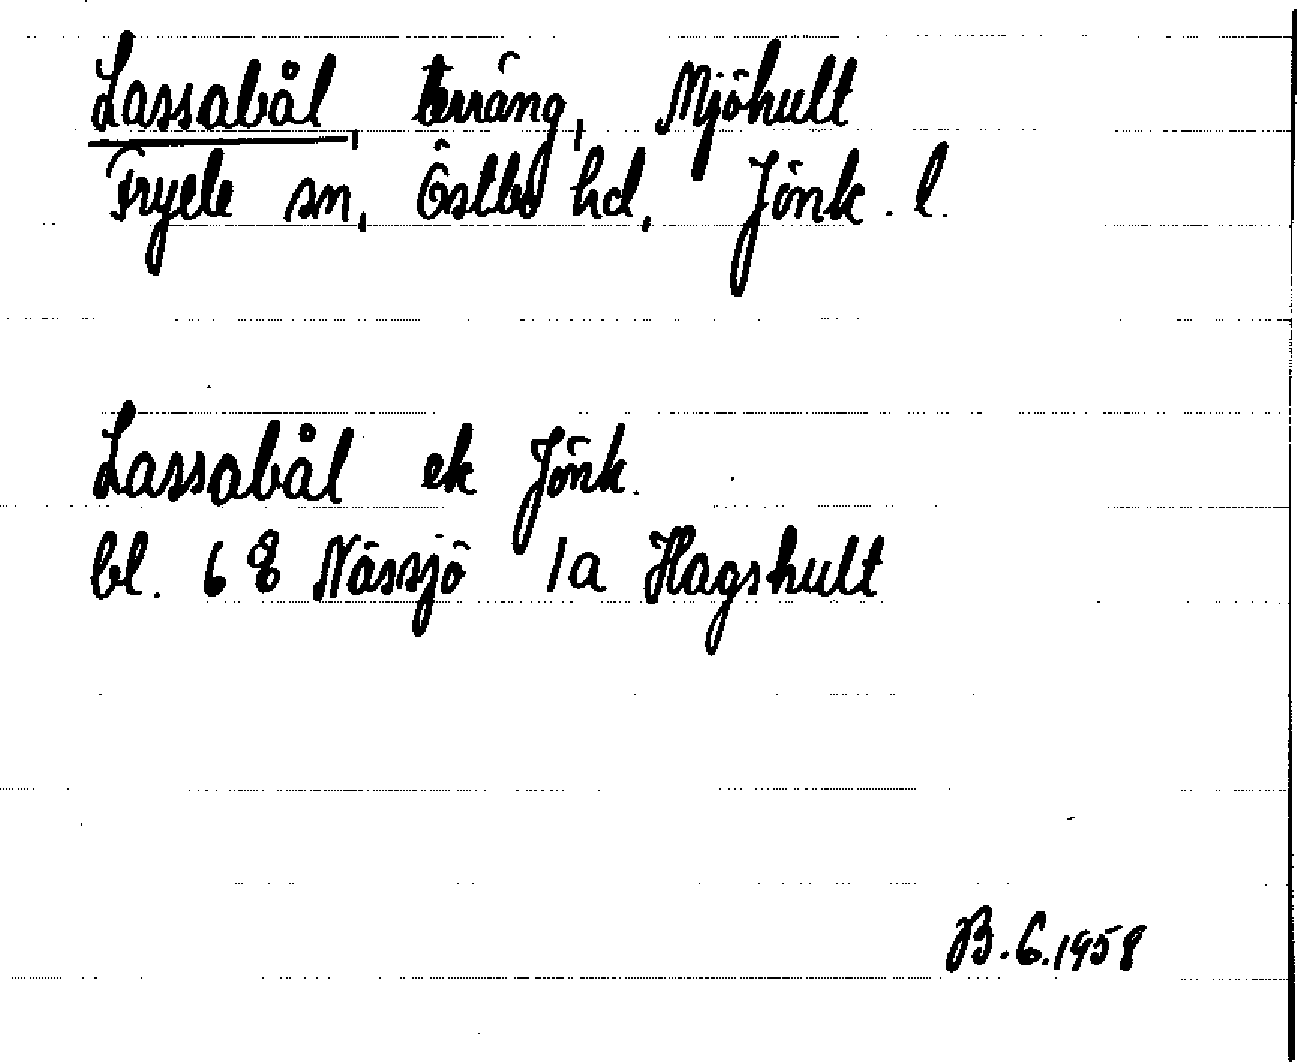 Lassabål, terräng, Mjöhult
Fryele sn, Östbo hd, Jönk. l.
Lassabål ek Jönk.
bl. 6 8 Nässjö 1a Hagshult
B.G.1958